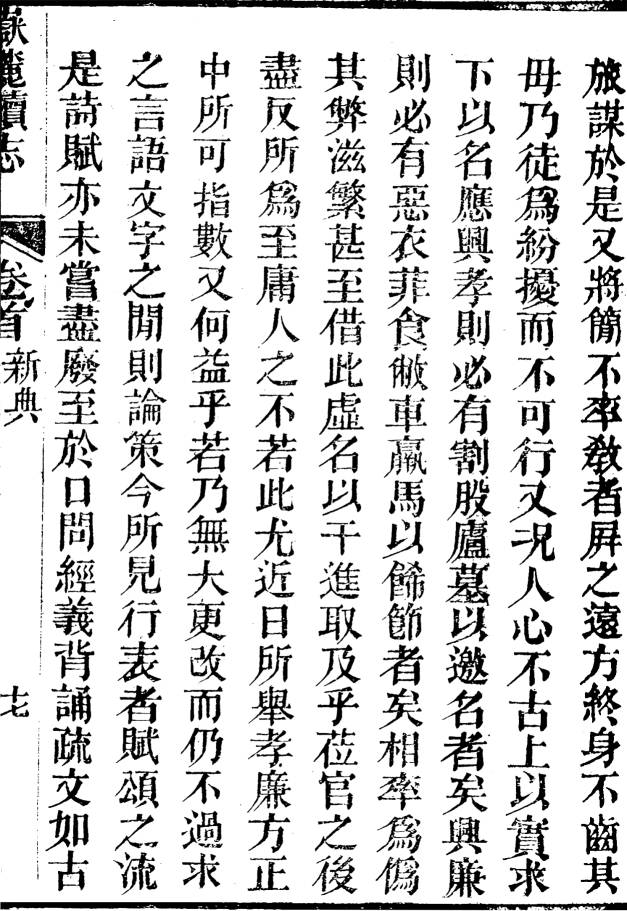 旅謀於是又將簡不率敎者屛之遠方終身不齒其
毋乃徒爲紛擾而不可行又况人心不古上以實求
下以名應興孝則必有割股廬墓以邀名者矣興廉
則必有惡衣菲食敝車羸馬以餙節者矣相率爲僞
其弊滋繁甚至借此虛名以干進取及乎莅官之後
盡反所爲至庸人之不若此尤近日所舉孝廉方正
中所可指數又何益乎若乃無大更改而仍不過求
之言語文字之閒則論策今所見行表者賦頌之流
是詩賦亦未嘗盡廢至於口問經義背誦疏文如古
麓續志
卷首
新典
十七